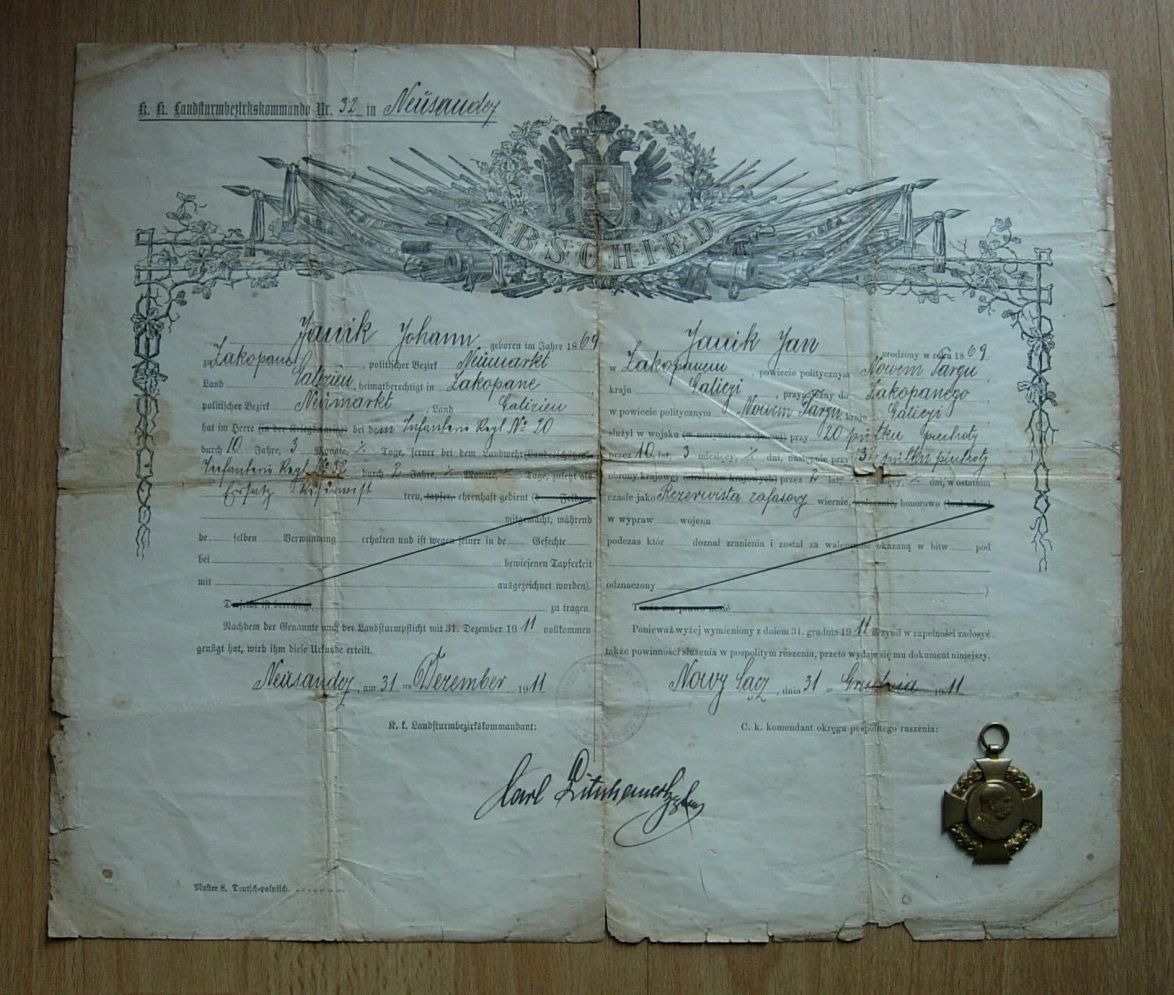 K. K. Landsturmbezirkskommando Nr. 32 in Neusandez
ABSCHIED
Janik Johann geboren im Jahre 1869
zu Zakopane, politischer Bezirk Neumarkt
Land Galizien, heimatberechtigt in Zakopane
politischer Bezirk Neumarkt, Land Galizien
hat im Heere (in der Kriegsmarine) bei dem Infanterie Regt. No 20
durch 10 Jahre, 3 Monate, Tage, ferner bei dem Landwehr
Infanterie Regt. No 32 durch 2 Jahre, Monate, Tage, zuletzt als
Ersatz Reservist treu, tapfer, ehrenhaft gedient
mitgemacht, während
de selben Verwundung erhalten und ist wegen seiner in de Gefechte
bei bewiesenen Tapferkeit
mit ausgezeichnet worden).
Derselbe ist berechtigt, zu tragen.
Nachdem der Genannte auch der Landsturmpflicht mit 31. Dezember 1911 vollkommen
genügt hat, wird ihm diese Urkunde erteilt.
Neusandez, am 31 ten Dezember 1911
K. k. Landsturmbezirkskommandant:
Janik Jan urodzony w roku 1869
w Zakopanem, powiecie politycznym Nowem Targu
kraju Galicyi, przynależny do Zakopanego
w powiecie politycznym Nowem Targu, kraju Galicyi
służył w wojsku (w marynarce wojennej) przy 20 pułku piechoty
przez 10 lat, 3 miesięcy, dni, następnie przy 32 pułku piechoty
obrony krajowej przez 2 lat, miesięcy, dni, w ostatnim
czasie jako Rezerwista zapasowy wiernie, walecznie, honorowo
w wypraw wojenn
podczas któr doznał zranienia i został za waleczność okazaną w bitw pod
odznaczony )
Tenże ma prawo nosić
Ponieważ wyżej wymieniony z dniem 31. grudnia 1911 uczynił w zupełności zadosyć
także powinności służenia w pospolitym ruszeniu, przeto wydaje się mu dokument niniejszy.
Nowy Sącz, dnia 31 Grudnia 1911
C. k. komendant okręgu pospolitego ruszenia:
Karl
Muster 8. Deutsch-polnisch.